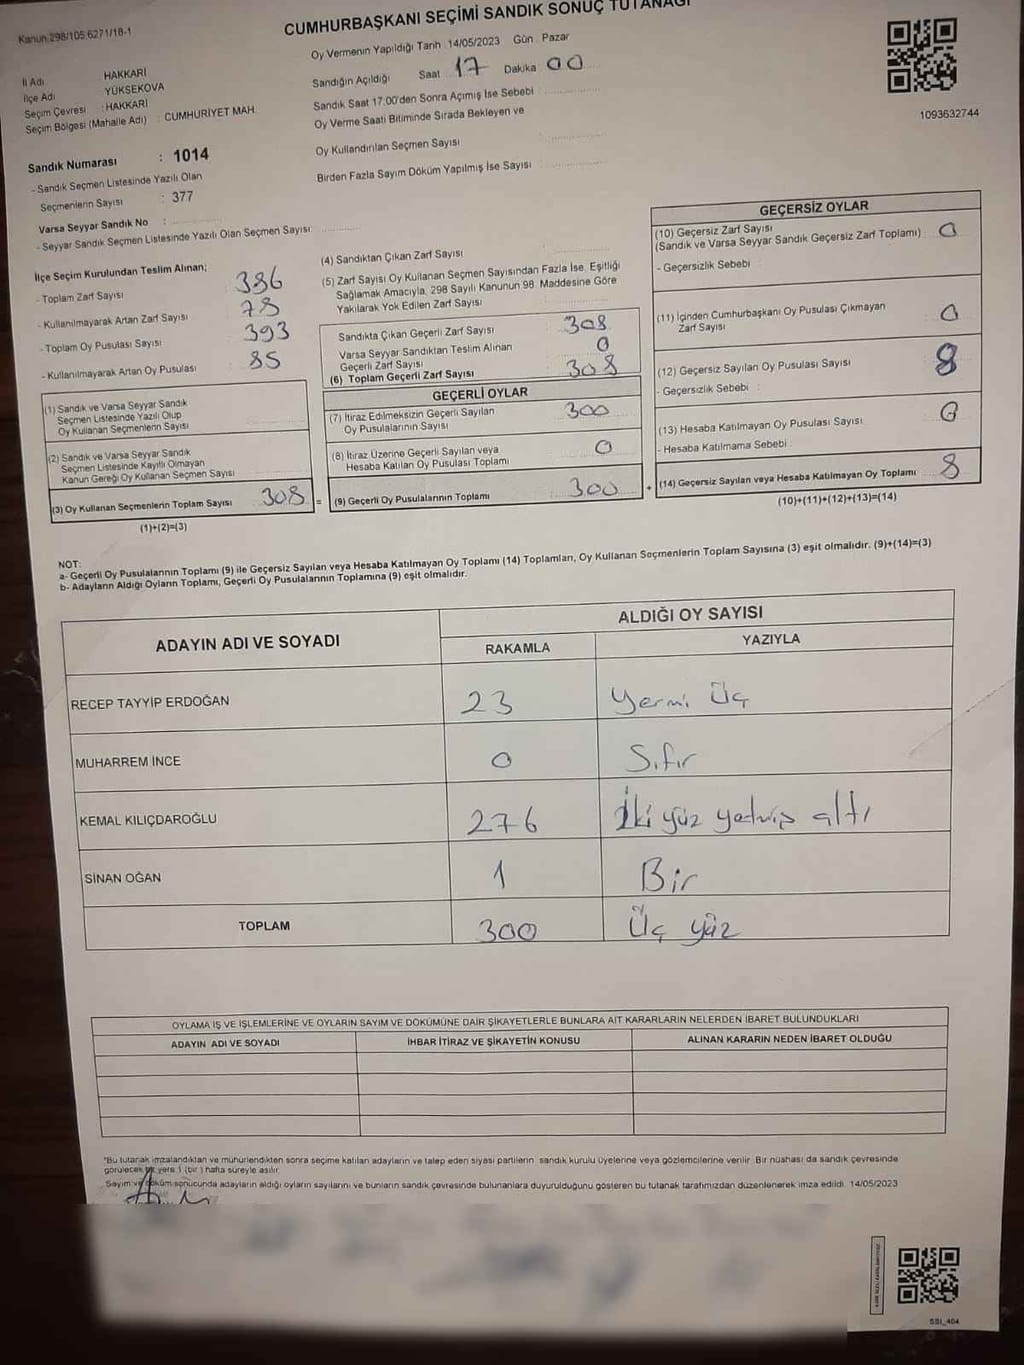 Kanun:298/105,6271/18-1
CUMHURBAŞKANI SEÇİMİ SANDIK SONUÇ TUTANAĞI
Oy Vermenin Yapıldığı Tarih : 14/05/2023 Gün : Pazar
İl Adı HAKKARİ
İlçe Adı YÜKSEKOVA
Seçim Çevresi : HAKKARİ
Seçim Bölgesi (Mahalle Adı) : CUMHURİYET MAH.
Sandığın Açıldığı Saat 17 Dakika 00
Sandık Saat 17:00'den Sonra Açımış İse Sebebi :
Oy Verme Saati Bitiminde Sırada Bekleyen ve
Oy Kullandırılan Seçmen Sayısı
Birden Fazla Sayım Döküm Yapılmış İse Sayısı
1093632744
Sandık Numarası : 1014
- Sandık Seçmen Listesinde Yazılı Olan
Seçmenlerin Sayısı : 377
Varsa Seyyar Sandık No :
- Seyyar Sandık Seçmen Listesinde Yazılı Olan Seçmen Sayısı:
İlçe Seçim Kurulundan Teslim Alınan;
- Toplam Zarf Sayısı 386
- Kullanılmayarak Artan Zarf Sayısı 78
- Toplam Oy Pusulası Sayısı 393
- Kullanılmayarak Artan Oy Pusulası 85
(1) Sandık ve Varsa Seyyar Sandık
Seçmen Listesinde Yazılı Olup
Oy Kullanan Seçmenlerin Sayısı
(2) Sandık ve Varsa Seyyar Sandık
Seçmen Listesinde Kayıtlı Olmayan
Kanun Gereği Oy Kullanan Seçmen Sayısı
(3) Oy Kullanan Seçmenlerin Toplam Sayısı 308 =
(1)+(2)=(3)
(4) Sandıktan Çıkan Zarf Sayısı
(5) Zarf Sayısı Oy Kullanan Seçmen Sayısından Fazla İse, Eşitliği
Sağlamak Amacıyla, 298 Sayılı Kanunun 98. Maddesine Göre
Yakılarak Yok Edilen Zarf Sayısı
Sandıkta Çıkan Geçerli Zarf Sayısı 308
Varsa Seyyar Sandıktan Teslim Alınan
Geçerli Zarf Sayısı 0
(6) Toplam Geçerli Zarf Sayısı 308
GEÇERLİ OYLAR
(7) İtiraz Edilmeksizin Geçerli Sayılan
Oy Pusulalarının Sayısı 300
(8) İtiraz Üzerine Geçerli Sayılan veya
Hesaba Katılan Oy Pusulası Toplamı 0
(9) Geçerli Oy Pusulalarının Toplamı 300 +
GEÇERSİZ OYLAR
(10) Geçersiz Zarf Sayısı
(Sandık ve Varsa Seyyar Sandık Geçersiz Zarf Toplamı) 0
- Geçersizlik Sebebi
(11) İçinden Cumhurbaşkanı Oy Pusulası Çıkmayan
Zarf Sayısı 0
(12) Geçersiz Sayılan Oy Pusulası Sayısı 8
- Geçersizlik Sebebi :
(13) Hesaba Katılmayan Oy Pusulası Sayısı 0
- Hesaba Katılmama Sebebi :
(14) Geçersiz Sayılan veya Hesaba Katılmayan Oy Toplamı 8
(10)+(11)+(12)+(13)=(14)
NOT:
a- Geçerli Oy Pusulalarının Toplamı (9) ile Geçersiz Sayılan veya Hesaba Katılmayan Oy Toplamı (14) Toplamları, Oy Kullanan Seçmenlerin Toplam Sayısına (3) eşit olmalıdır. (9)+(14)=(3)
b- Adayların Aldığı Oyların Toplamı, Geçerli Oy Pusulalarının Toplamına (9) eşit olmalıdır.
ADAYIN ADI VE SOYADI ALDIĞI OY SAYISI
RAKAMLA YAZIYLA
RECEP TAYYİP ERDOĞAN 23 Yermi Üç
MUHARREM İNCE 0 Sıfır
KEMAL KILIÇDAROĞLU 276 İki yüz yetmiş altı
SİNAN OĞAN 1 Bir
TOPLAM 300 Üç yüz
OYLAMA İŞ VE İŞLEMLERİNE VE OYLARIN SAYIM VE DÖKÜMÜNE DAİR ŞİKAYETLERLE BUNLARA AİT KARARLARIN NELERDEN İBARET BULUNDUKLARI
ADAYIN ADI VE SOYADI İHBAR İTİRAZ VE ŞİKAYETİN KONUSU ALINAN KARARIN NEDEN İBARET OLDUĞU
*Bu tutanak imzalandıktan ve mühürlendikten sonra seçime katılan adayların ve talep eden siyasi partilerin sandık kurulu üyelerine veya gözlemcilerine verilir. Bir nüshası da sandık çevresinde
görülecek bir yere 1 (bir) hafta süreyle asılır.
Sayım ve döküm sonucunda adayların aldığı oyların sayılarını ve bunların sandık çevresinde bulunanlara duyurulduğunu gösteren bu tutanak tarafımızdan düzenlenerek imza edildi. 14/05/2023
SSI_404